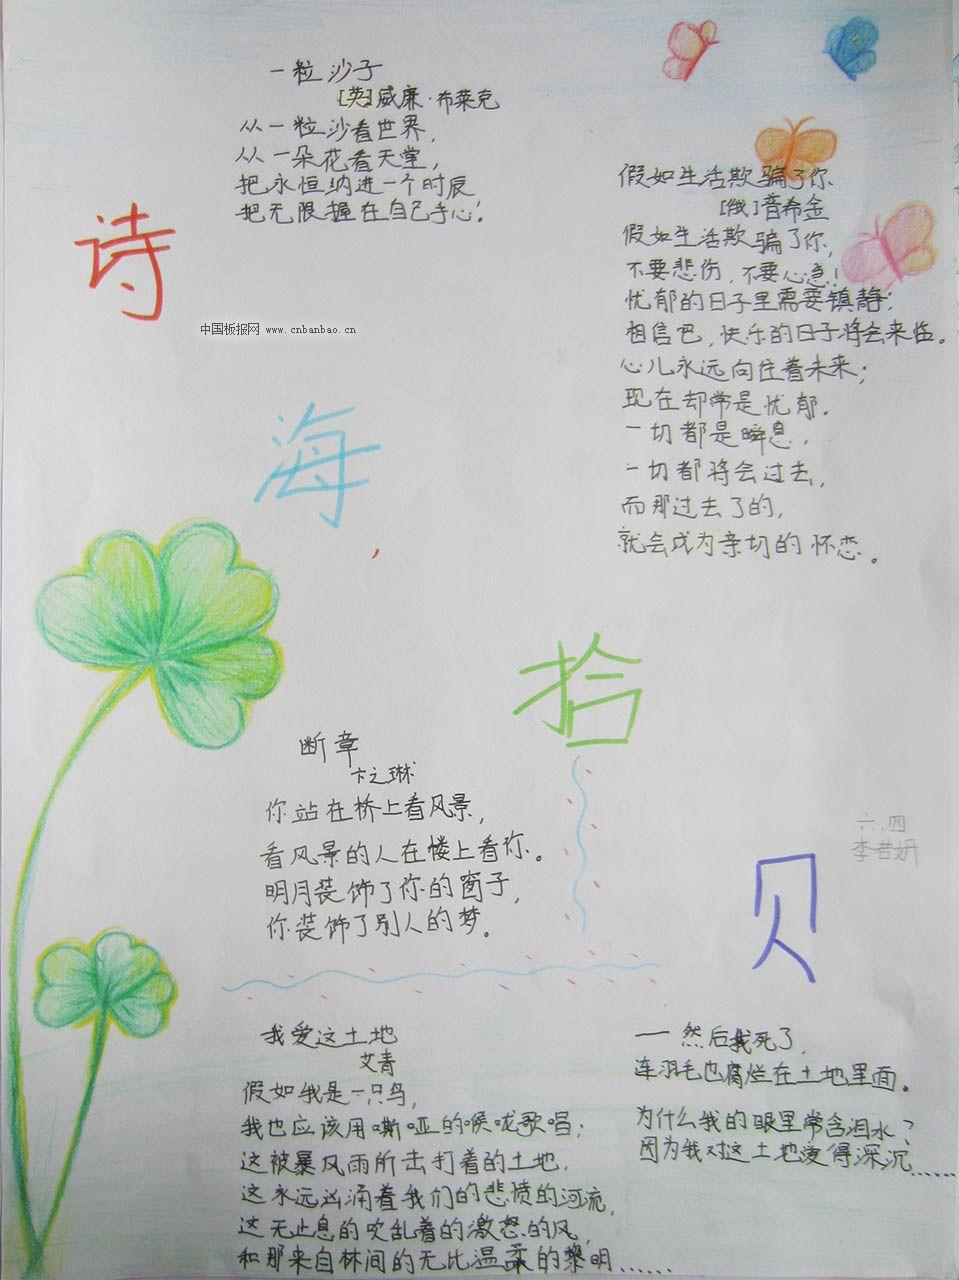 一粒沙子
[英]威廉·布莱克
从一粒沙看世界，
从一朵花看天堂，
把永恒纳进一个时辰
把无限握在自己手心！
假如生活欺骗了你
[俄]普希金
假如生活欺骗了你，
不要悲伤，不要心急！
忧郁的日子里需要镇静；
相信吧，快乐的日子将会来临。
心儿永远向往着未来；
现在却常是忧郁．
一切都是瞬息，
一切都将会过去，
而那过去了的，
就会成为亲切的怀恋。
诗
中国板报网 www.cnbanbao.cn
海
拾
贝
断章
卞之琳
你站在桥上看风景，
看风景的人在楼上看你。
明月装饰了你的窗子，
你装饰了别人的梦。
六.四
李君妍
我爱这土地
艾青
假如我是一只鸟，
我也应该用嘶哑的喉咙歌唱；
这被暴风雨所击打着的土地．
这永远汹涌着我们的悲愤的河流，
这无止息的吹乱着的激怒的风，
和那来自林间的无比温柔的黎明……
——然后我死了，
连羽毛也腐烂在土地里面。
为什么我的眼里常含泪水？
因为我对这土地爱得深沉……